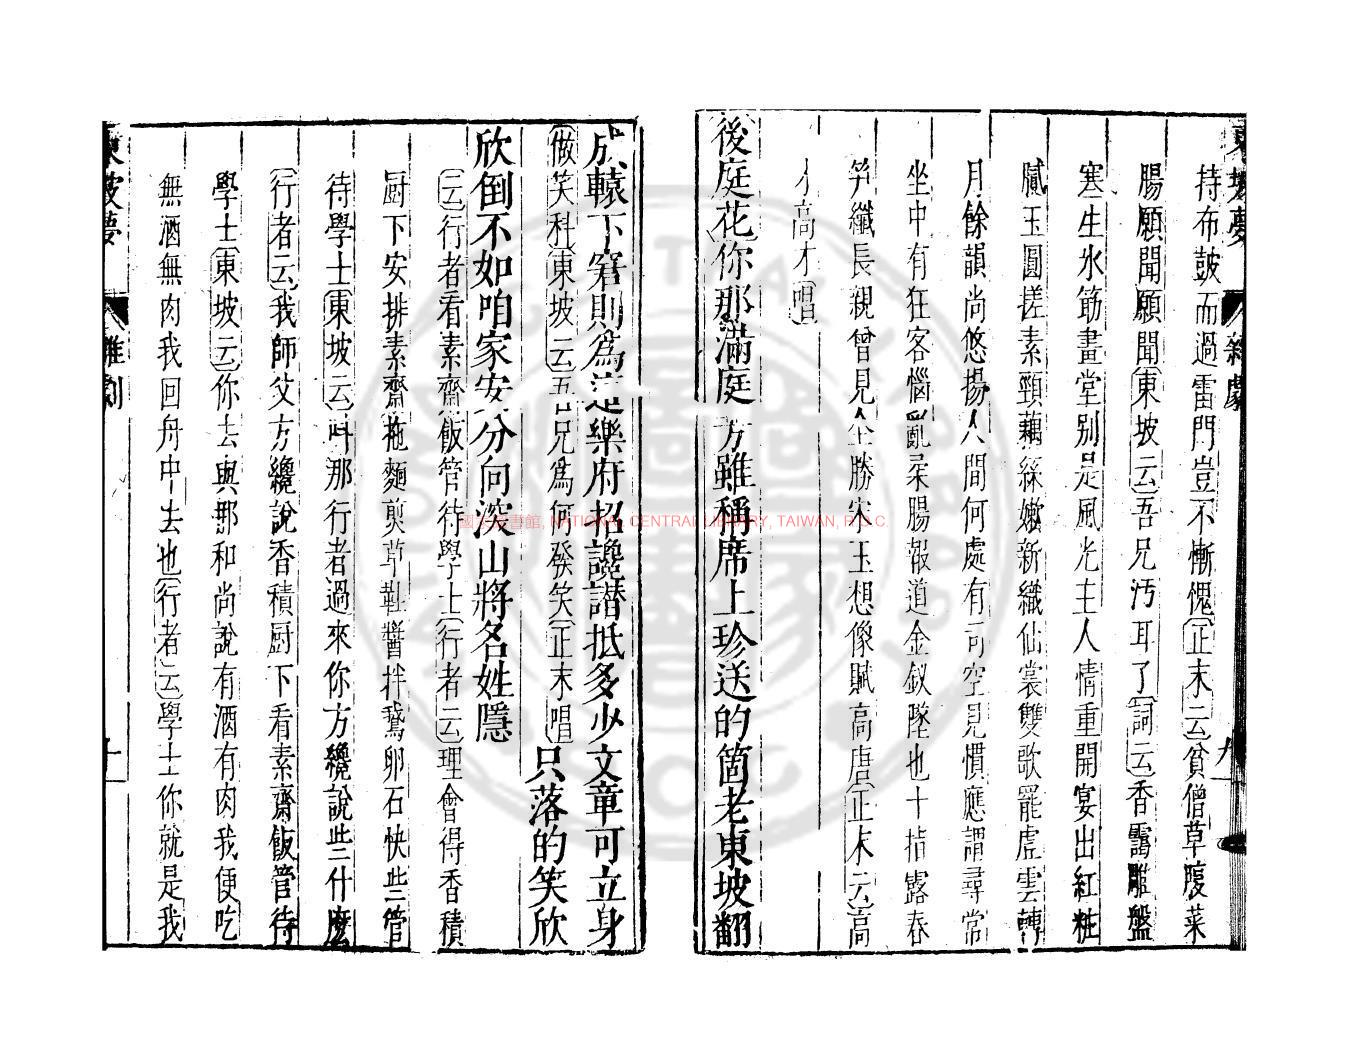 東坡夢 雜劇 九
持布鼓而過雷門豈不慚愧正末云貧僧草腹菜
腸願聞願聞東坡云吾兄汚耳了詞云香靄雕盤
塞生氷筋畫堂别是風光主人情重開宴出紅粧
膩玉圓搓素頸藕絲嫩新織仙裳雙歌罷虛雲轉
月餘韻尚悠揚人間何處有司空見慣應謂尋常
坐中有狂客惱亂柔腸報道金釵墜也十指露春
笋纖長親曾見全勝宋玉想像賦高唐正末云高
才高才唱
後庭花你那滿庭芳雖稱席上珍送的箇老東坡翻
成轅下窘則爲這樂府招讒譖抵多少文章可立身
做笑科東坡云吾兄爲何發笑正末唱只落的笑欣
欣倒不如咱家安分向深山將名姓隱
云行者看素齋飯管待學士行者云理會得香積
厨下安排素齋拖麵剪草鞋醬拌鵝卵石快些管
待學士東坡云叫那行者過來你方纔說些什麽
行者云我師父方纔說香積厨下看素齋飯管待
學士東坡云你去與那和尚說有酒有肉我便吃
無酒無肉我回舟中去也行者云學士你就是我
東坡夢 雜劇 十
國家圖書館, NATIONAL CENTRAL LIBRARY, TAIWAN, R.O.C